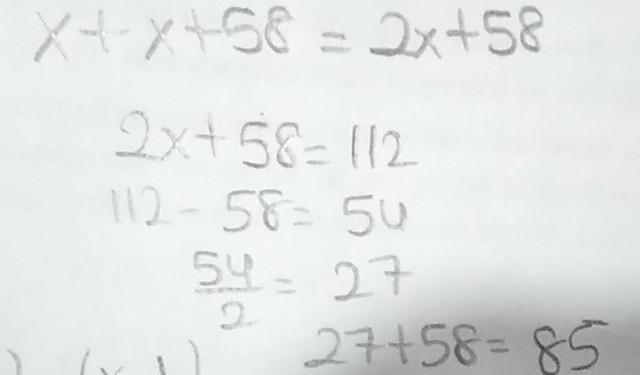 x + x + 58 = 2x + 58
2x + 58 = 112
112 - 58 = 54
54/2 = 27
27 + 58 = 85